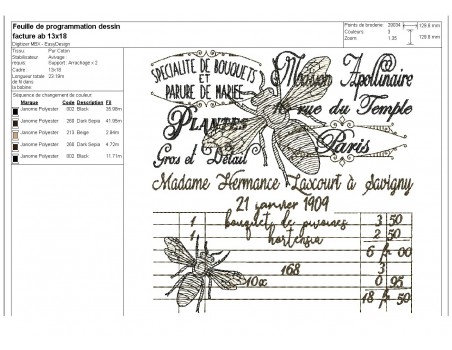 Feuille de programmation dessin
facture ab 13x18
Digitizer MBX - EasyDesign
Points de broderie: 29834
Couleurs: 3
Zoom: 1.35
128.8 mm
128.8 mm
Tissu: Pur Coton
Stabilisateur Avvrage:
Requis: Support: Arrachage x 2
Cadre: 13x18
Longueur totale 23.19m
de fil dans
la bobine:
Séquence de changement de couleur:
Marque Code Description Fil
Janome Polyester 002 Black
Janome Polyester 260 Dark Sepia 41.99m
Janome Polyester 213 Beige 2.94m
Janome Polyester 260 Dark Sepia 4.72m
Janome Polyester 002 Black 11.71m
SPECIALITE DE BOUQUETS
ET
PARURE DE MARIEE
Maison Apollinaire
rue du Temple
PLANTES
Paris
Gros et Détail
Madame Hermance Laxcourt à Savigny
21 janvier 1909
1 bouquets de pivoines 3 50
1 hortensia 2 50
6 00
168 3
10x 0 95
18 50